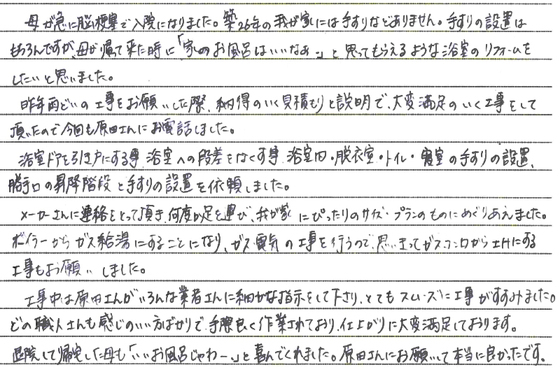 母が急に脳梗塞で入院になりました。築26年の我が家には手すりなどありません。手すりの設置は
もちろんですが、母が帰って来た時に「家のお風呂はいいなあ」と思ってもらえるような浴室のリフォームを
したいと思いました。
昨年雨どいの工事をお願いした際、納得のいく見積もりと説明で、大変満足のいく工事をして
頂いたので今回も原田さんにお電話しました。
浴室ドアを引き戸にする事、浴室への段差をなくす事、浴室内・脱衣室・トイレ・寝室の手すりの設置、
勝手口の昇降階段と手すりの設置を依頼しました。
メーカーさんに連絡をとって頂き、何度か足を運び、我が家にぴったりのサイズ・プランのものにめぐりあえました。
ボイラーからガス給湯にすることになり、ガス、電気の工事を行うので、思いきってガスコンロからIHにする
工事もお願いしました。
工事中は原田さんがいろんな業者さんに細かな指示をして下さり、とてもスムーズに工事がすすみました。
どの職人さんも感じのいい方ばかりで、手際良く作業されており、仕上がりに大変満足しております。
退院して帰宅した母も「いいお風呂じゃわー」と喜んでくれました。原田さんにお願いして本当に良かったです。